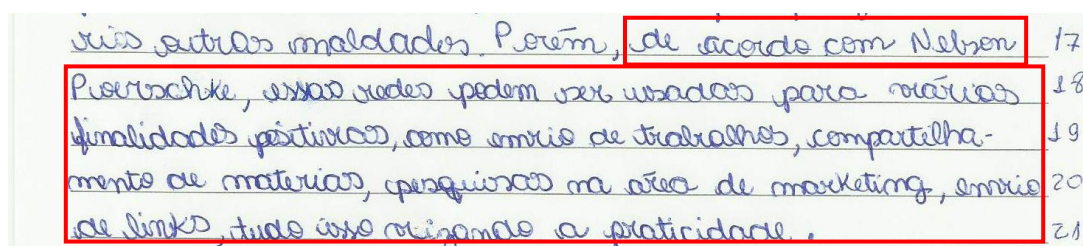 rias outras maldades. Porém, de acordo com Nelson 17
Pioerschke, essas redes podem ser usadas para várias 18
finalidades positivas, como envio de trabalhos, compartilha- 19
mento de materias, pesquisas na área de marketing, envio 20
de links, tudo isso visando a praticidade. 21